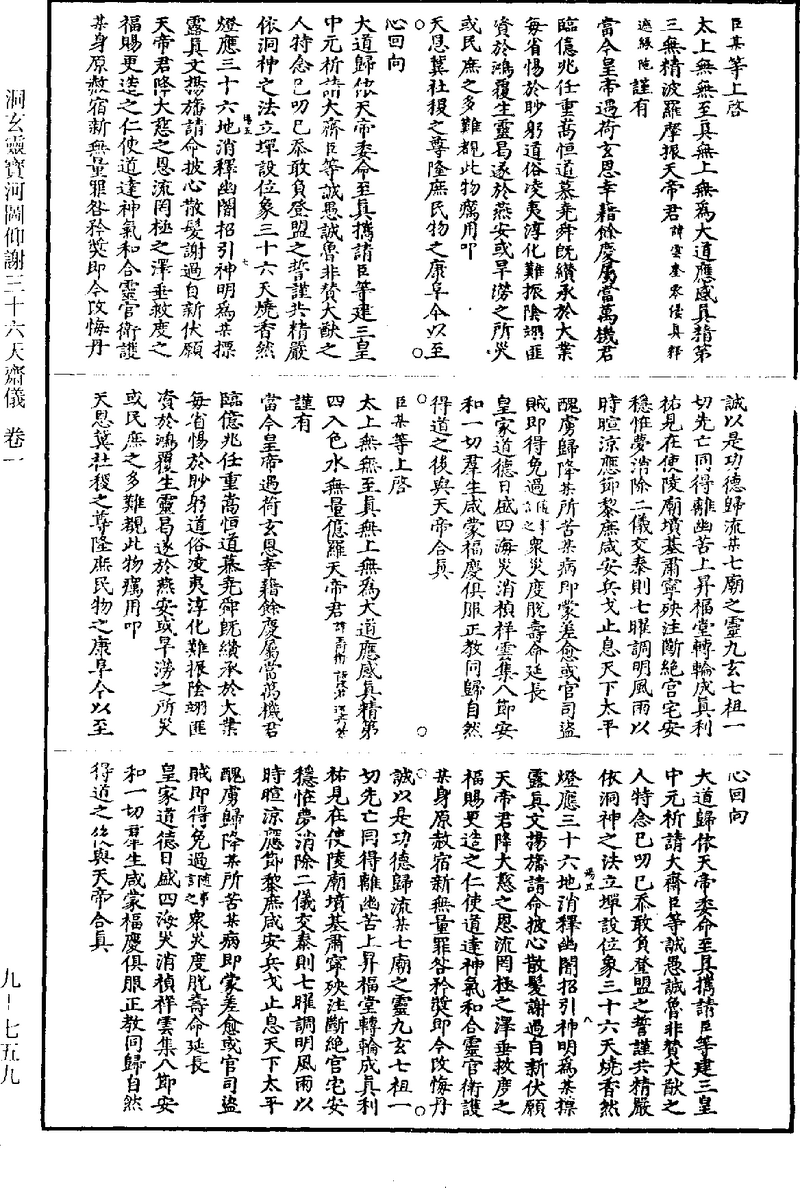 臣某等上啓
太上無無至真無上無為大道應感真精第
三無精波羅摩振天帝君
謹有
當今皇帝遇荷玄恩幸藉餘慶屬當萬機君
臨億兆任重嵩恒道慕堯舜既纘承於大業
每省惕於眇躬道俗凌夷淳化難振陰翊匪
資於鴻覆生靈曷遂於燕安或旱澇之所災
或民庶之多難覩此物癘用叩
天恩冀社稷之尊隆庶民物之康阜今以至
心回向
大道歸依天帝委命至真攜請臣等建三皇
中元祈請大齋臣等誠愚誠魯非贊大猷之
人特念已叨已忝敢負登盟之誓謹共精嚴
依洞神之法立墠設位象三十六天燒香然
燈應三十六地消釋幽闇招引神明為某摽
露真文揚旛請命披心散髮謝過自新伏願
天帝君降大慈之恩流罔極之澤垂救度之
福賜更造之仁使道達神氣和合靈官衛護
某身原赦宿新無量罪咎矜獎即今改悔丹
誠以是功德歸流某七廟之靈九玄七祖一
切先亡同得離幽苦上昇福堂轉輪成真利
祐見在使陵廟墳基肅寧殃注斷絕宫宅安
穩惟夢消除二儀交泰則七曜調明風雨以
時暄涼應節黎庶咸安兵戈止息天下太平
醜虜歸降某所苦某病即蒙差愈或官司盜
賊即得免過隨事言之衆災度脫壽命延長
皇家道德日盛四海災消禎祥雲集八節安
和一切羣生咸蒙福慶俱服正教同歸自然
得道之後與天帝合真
臣某等上啓
太上無無至真無上無為大道應感真精第
四入色水無量億羅天帝君
謹有
當今皇帝遇荷玄恩幸藉餘慶屬當萬機君
臨億兆任重嵩恒道慕堯舜既纘承於大業
每省惕於眇躬道俗凌夷淳化難振陰翊匪
資於鴻覆生靈曷遂於燕安或旱澇之所災
或民庶之多難覩此物癘用叩
天恩冀社稷之尊隆庶民物之康阜今以至
心回向
大道歸依天帝委命至真攜請臣等建三皇
中元祈請大齋臣等誠愚誠魯非贊大猷之
人特念已叨已忝敢負登盟之誓謹共精嚴
依洞神之法立墠設位象三十六天燒香然
燈應三十六地消釋幽闇招引神明為某摽
露真文揚旛請命披心散髮謝過自新伏願
天帝君降大慈之恩流罔極之澤垂救度之
福賜更造之仁使道達神氣和合靈官衛護
某身原赦宿新無量罪咎矜獎即今改悔丹
誠以是功德歸流某七廟之靈九玄七祖一
切先亡同得離幽苦上昇福堂轉輪成真利
祐見在使陵廟墳基肅寧殃注斷絕宫宅安
穩惟夢消除二儀交泰則七曜調明風雨以
時暄涼應節黎庶咸安兵戈止息天下太平
醜虜歸降某所苦某病即蒙差愈或官司盜
賊即得免過隨事言之衆災度脫壽命延長
皇家道德日盛四海災消禎祥雲集八節安
和一切羣生咸蒙福慶俱服正教同歸自然
得道之後與天帝合真
洞玄靈寶河圖仰謝三十六天齋儀 卷一
九-七五九